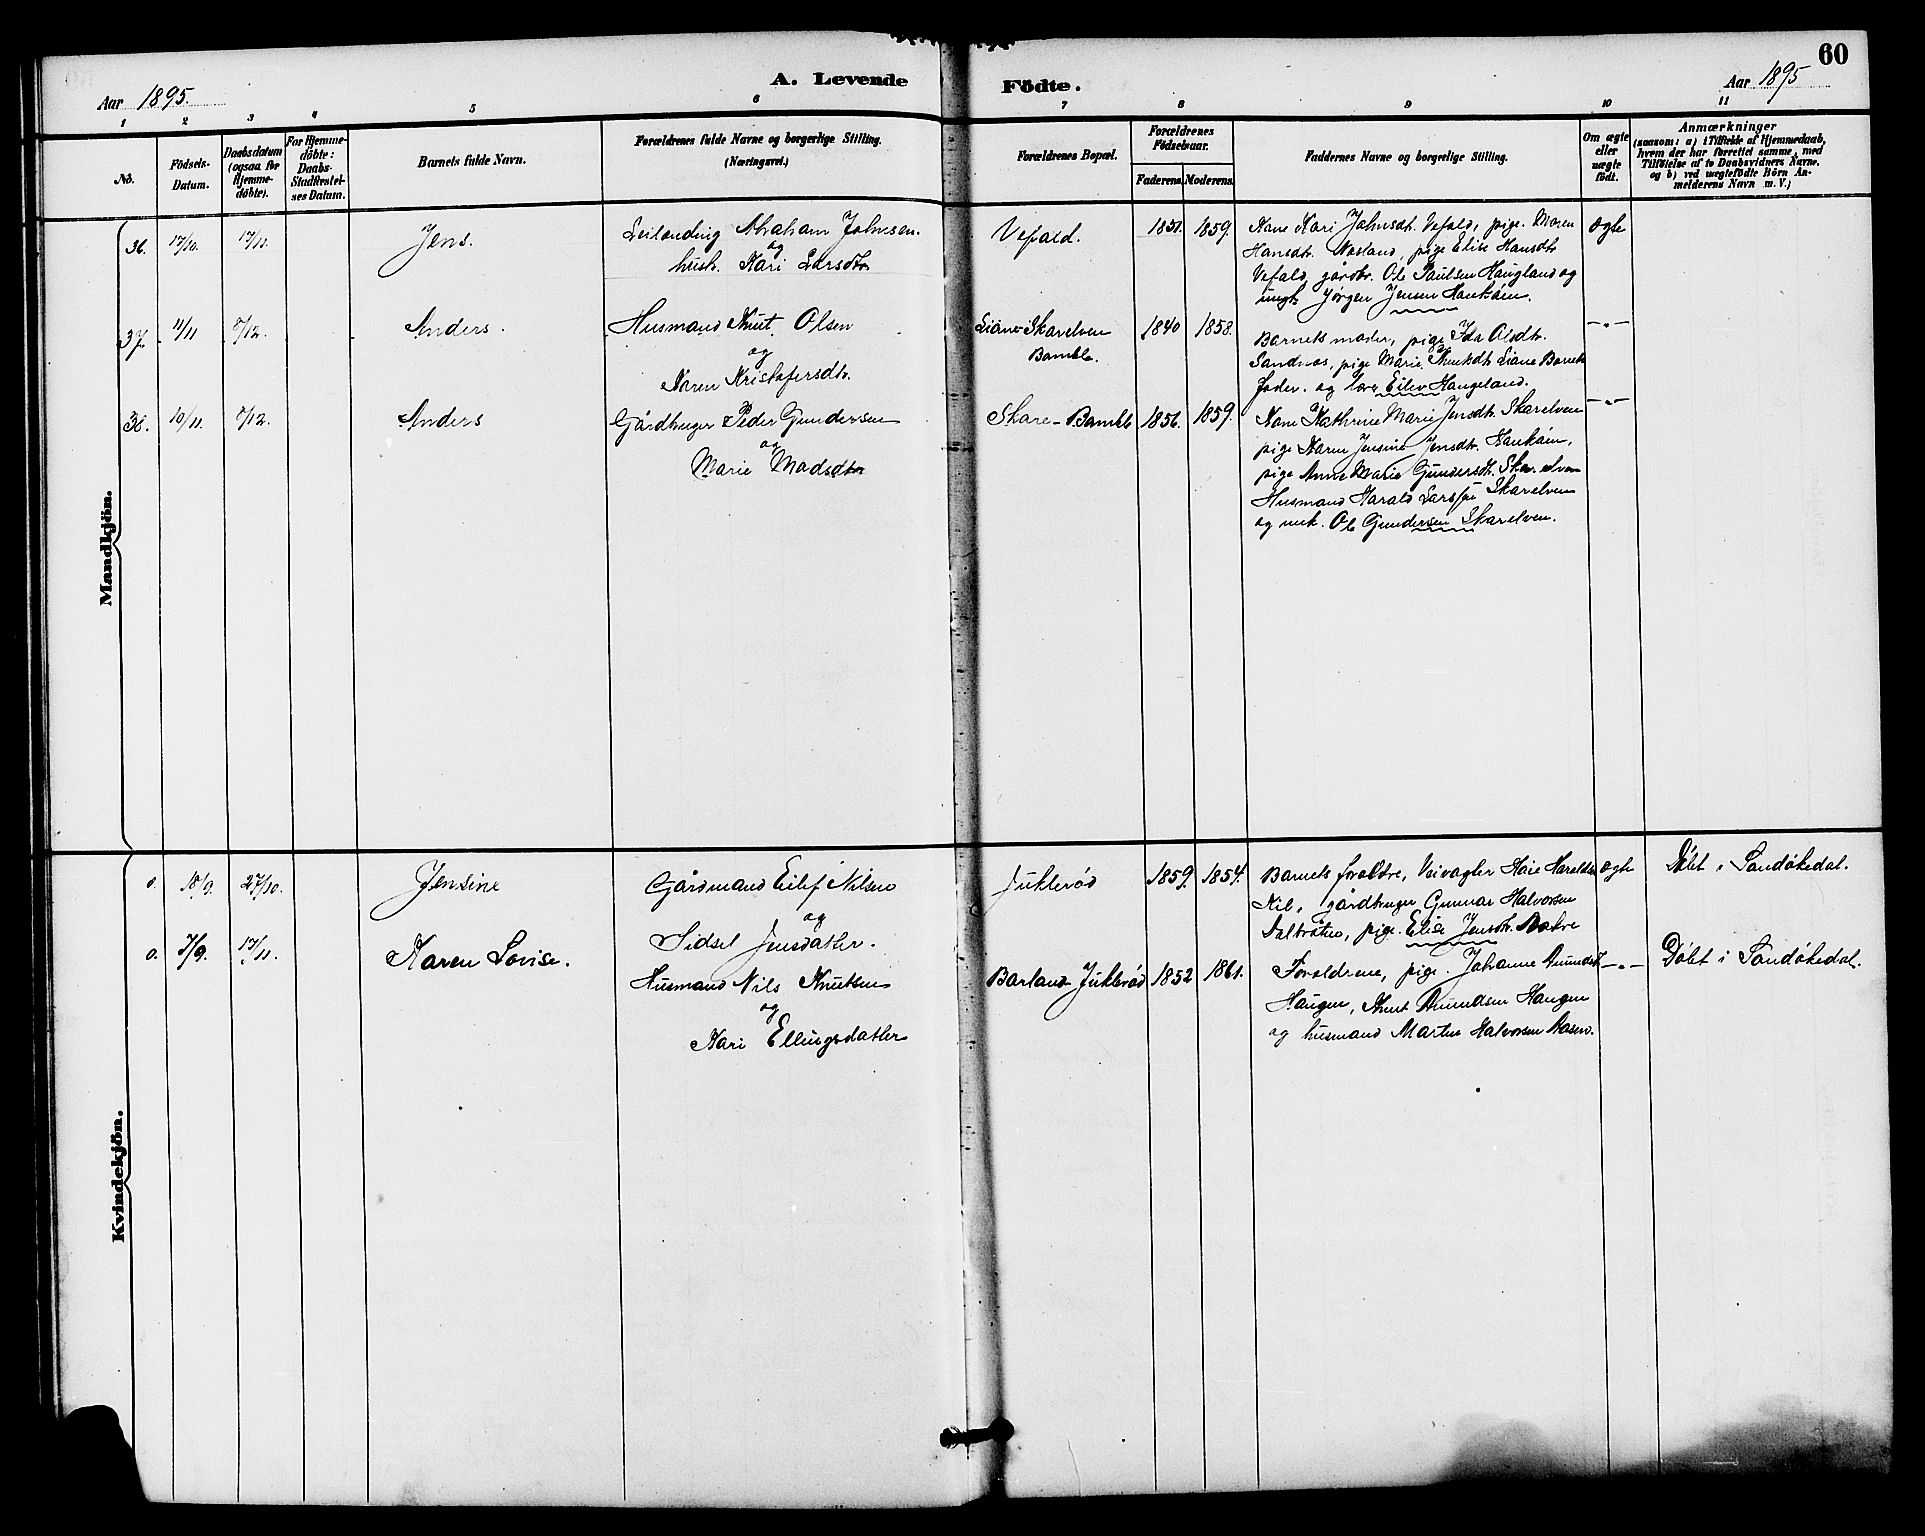 60
A. Levende Födte.
Aar 1895.
Aar 1895
1 2 3 4 5 6 7 8 9 10 11
No.
Födsels-Datum.
Daabsdatum (ogsaa for Hjemmedöbte).
For Hjemmedöbte: Daabs-Stadfæstelses Datum.
Barnets fulde Navn.
Forældrenes fulde Navne og borgerlige Stilling. (Næringsvei.)
Forældrenes Bopæl.
Forældrenes Födselsaar.
Faderens. Moderens.
Faddernes Navne og borgerlige Stilling.
Om ægte eller uægte födt.
Anmærkninger
(saasom: a) i Tilfælde af Hjemmedaab,
hvem der har forrettet samme, med
Tilföielse af to Daabsvidners Navne.
og b) ved uægtefödte Börn An-
melderens Navn m. V.;)
Mandkjön.
36. 17/10. 17/11. Jens.
Leilending Abraham Johnsen.
og
hustr. Kari Larsdtr
Vefald. 1851. 1859.
Kone Kari Johnsdt. Vefald, pige. Maren
Hansdt. pige Elise Hansdtr
Vefald, gårdbr. Ole Paulsen Haugland og
ungk Jørgen Jensen Haukåen.
Ægte
37. 4/11 8/12. Anders.
Husmand Knut Olsen
og
Karen Kristofersdtr.
Liane Skarelven
Bamble.
1840 1858.
Barnets moder, pige Ida Olsdtr.
Sandnæs, pige Marie Knutsdt. Liane Barnets
fader. og lærer Eilev Haugeland.
—"—
38. 10/11. 8/12. Anders
Gårdbruger Peder Gundersen
og
Marie Madsdtr
Skare - Bamble 1856. 1859.
Kone Kathrine Marie Jensdtr. Skarelven
pige Karen Jensine Jensdtr. Haukåen,
pige Anne Marie Gundersdtr. Skarelven
Husmand Harald Larssen Skarelven
og unk. Ole Gundersen Skarelven.
—"—
Kvindekjön.
0. 18/9. 27/10. Jensine
Gårdmand Eilef Nilsen
og
Sidsel Jensdatter.
Juklerød 1859. 1854.
Barnets forældre, Veivogter Haie Haraldsen
Kil, gårdbruger Gunnar Halvorsen
Dalbråten, pige. Elise Jensdtr. Bakke
Ægte
Døbt i Sandøkedal.
0. 7/9. 17/11. Karen Lovise.
Husmand Nils Knutsen
og
Kari Ellingsdatter
Barland Juklerød 1852 1861.
Forældrene, pige. Johanne Amundsdt
Haugen, Knut Amundsen Haugen
og husmand Martin Halvorsen Aasen.
—"—
Døbt i Sandøkedal.